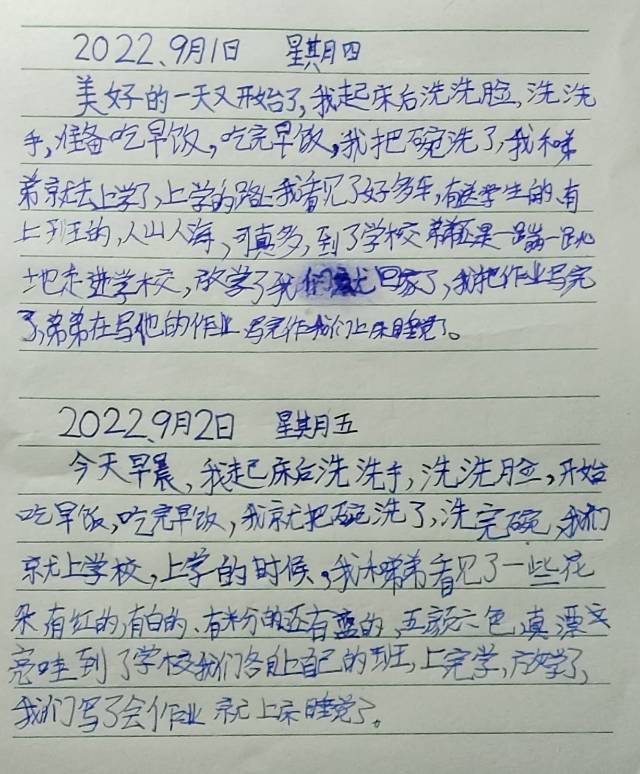 2022、9月1日 星期四
美好的一天又开始了,我起床后洗洗脸,洗洗
手,准备吃早饭,吃完早饭,我把碗洗了,我和弟
弟就去上学了,上学的路上我看见了好多车,有送学生的,有
上班的,人山人海,可真多,到了学校弟弟还是一蹦一跳
地走进学校,放学了我们就回家了,我把作业写完
了,弟弟在写他的作业 写完作我们上床睡觉了。
2022、9月2日 星期五
今天早晨,我起床后洗洗手,洗洗脸,开始
吃早饭,吃完早饭,我就把碗洗了,洗完碗,我们
就上学校,上学的时候,我和弟弟看见了一些花
朵有红的,有白的、有粉的还有蓝的,五颜六色,真漂
亮哇到了学校我们各自上自己的班,上完学,放学了,
我们写了会作业 就上床睡觉了。